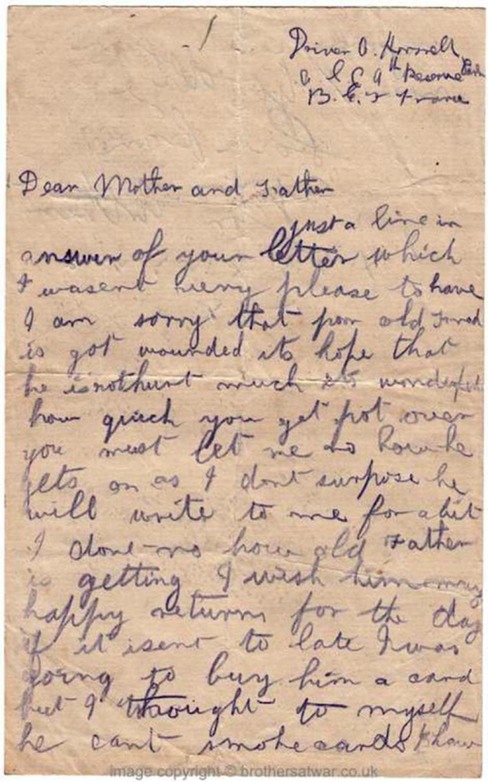 Driver O. Horswell
9th Reserve Park
B.E.F France
Dear Mother and Father
just a line in
answer of your letter which
I wasent verry please to have
I am sorry that poor old Fred
is got wounded its hope that
he is not hurt much its wonderful
how quick you get pot over
you must let me no how he
gets on as I dont surpose he
will write to me for a bit
I dont no how old Father
is getting I wish him many
happy returns for the day
if it isent to late I was
going to buy him a card
but I thought to myself
he cant smoke cards
image copyright © brothersatwar.co.uk